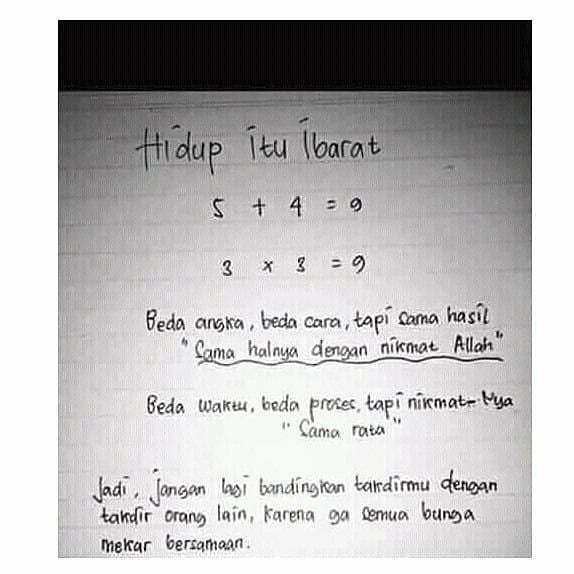 Hidup itu ibarat
5 + 4 = 9
3 x 3 = 9
Beda angka, beda cara, tapi sama hasil
"Sama halnya dengan nikmat Allah"
Beda waktu, beda proses, tapi nikmat-Nya
"Sama rata"
Jadi, jangan lagi bandingkan takdirmu dengan
takdir orang lain, karena ga semua bunga
mekar bersamaan.